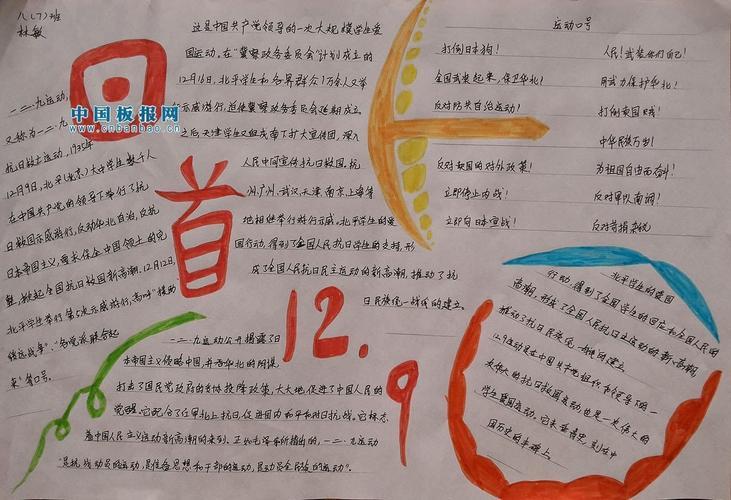 八(7)班
林敏
回
首
12.9
中国板报网
www.cnbanbao.cn
一二·九运动,
又称为一二·九
抗日救亡运动,1935年
12月9日,北平(北京)大中学生数千人
在中国共产党的领导下举行了抗
日救国示威游行,反动华北自治,反抗
日本帝国主义,要求保全中国领土的完
整,掀起全国抗日救国新高潮。12月12日,
北平学生举行第5次示威游行,高呼“援助
绥远抗争”、“各党派联合起
来”等口号。
这是中国共产党领导的一次大规模学生爱
国运动。在“冀察政务委员会”计划成立的
12月16日,北平学生和各界群众1万余人又举
示威游行,迫使冀察政务委员会延期成立。
之后,天津学生又组成南下扩大宣传团,深入
人民中间宣传抗日救国。杭
州、广州、武汉、天津、南京、上海等
地相继举行游行示威。北平学生的爱
国行动,得到了全国人民抗日学生的支持,形
成了全国人民抗日民主运动的新高潮,推动了抗
日民族统一战线的建立。
一二·九运动公开揭露了日
本帝国主义侵略中国,并吞华北的阴谋,
打击了国民党政府的妥协投降政策,大大地促进了中国人民的
觉醒。它配合了红军北上抗日,促进国内和平和对日抗战。它标志
着中国人民主义运动新高潮的来到。正如毛泽东所指出的,一二·九运动
“是抗战动员的运动,是准备思想和干部的运动,是动员全民族的运动”。
运动口号
打倒日本狗! 人民!武装你们自己!
全国武装起来,保卫华北! 用武力保护华北!
反对防共自治运动! 打倒卖国贼!
中华民族万岁!
反对卖国的对外政策! 为祖国自由而奋斗!
立即停止内战! 反对军队南调!
立即向日本宣战! 反对苛捐杂税
北平学生的爱国
行动,得到了全国学生的回应和全国人民的
高潮,形成了全国人民抗日民主运动的新高潮,
推动了抗日民族统一战线的建立。
12.9运动是在中国共产党组织和领导下的一
次伟大的抗日救国运动,也是一次伟大的
学生爱国运动。它永垂青史,刻在中
国历史的丰碑上。